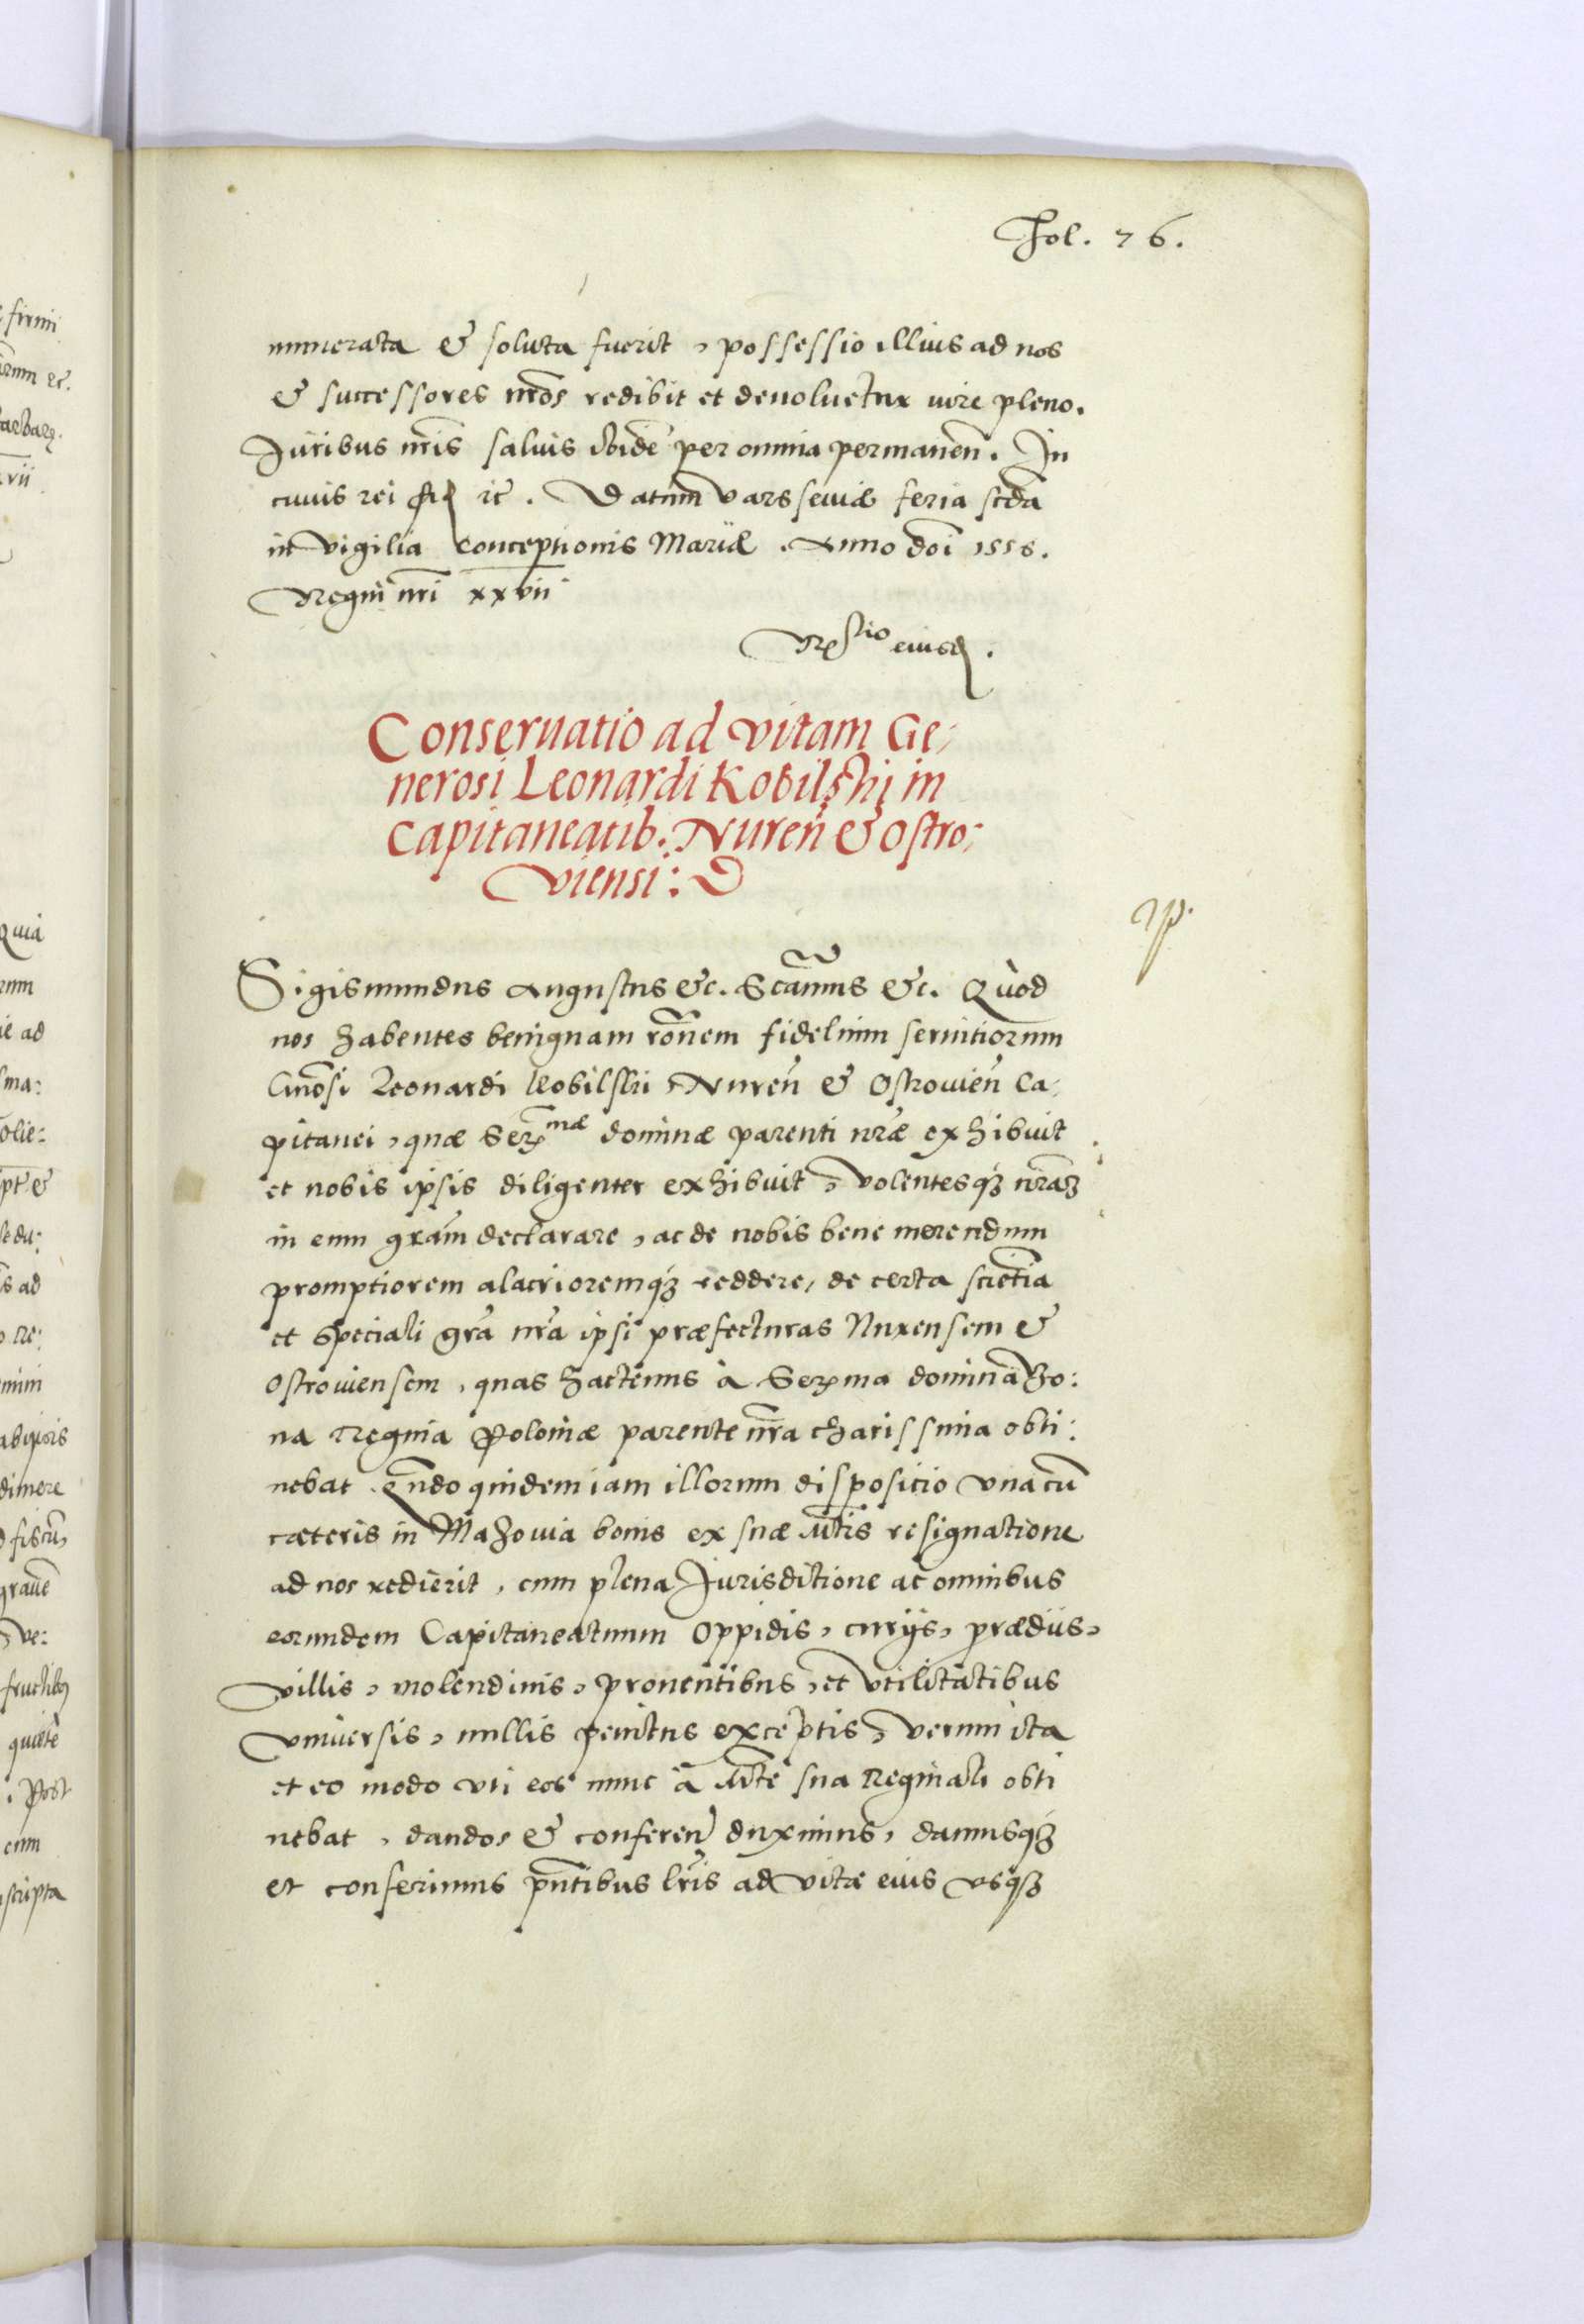 Fol. 76.
numerata & soluta fuerit, possessio illius ad nos
& successores nr̃os redibit et deuoluetur iure pleno.
Juribus nr̃is saluis ibidẽ per omnia permanen̄. In
cuius rei fid ꝛc̃. Datum Varsseuiæ feria scďa
in vigilia Conceptionis Mariæ. Anno doi 1556.
Regni nr̃i xxvii
Rᵉˡᵗⁱᵒ eiusd.
Conseruatio ad vitam Ge,
nerosi Leonardi Kobilski in
Capitaneatib. Nuren̄ & Ostro:
viensi:
Sigismundus Augustus &c. Sc̃amus &c. Quòd
nos habentes benignam rõnem fidelium seruitiorum
Gnõsi Leonardi Kobilski Nuren̄ & Ostrouien̄ Ca,
pitanei, quæ Serᵐᵃᵉ dominæ parenti nr̃æ exhibuit
et nobis ipsis diligenter exhibuit, volentesqȝ nr̃aȝ
in eum gr̃am declarare, ac de nobis bene merendum
promptiorem alacrioremqȝ reddere, de certa sciẽtia
et speciali gr̃a nr̃a ipsi præfecturas Nurensem &
Ostrouiensem, quas hactenus à Serma domina Bo:
na Regina Poloniæ parente nr̃a charissima obti:
nebat. Qñdo quidem iam illorum dispositio vna cũ
cæteris in Mazouia bonis ex suæ Mt̃is resignatione
ad nos redierit, cum plena Jurisditione ac omnibus
eorumdem Capitaneatuum oppidis, curijs, prædiis,
villis, molendinis, prouentibus, et vtilitatibus
vniuersis, nullis penitus exceptis, verum ita
et eo modo vti eos nunc à Mt̃e sua Reginali obti
nebat, dandos & conferen̄ duximus, damusqȝ
et conferimus pñtibus lr̃is ad vitæ eius vsqȝ